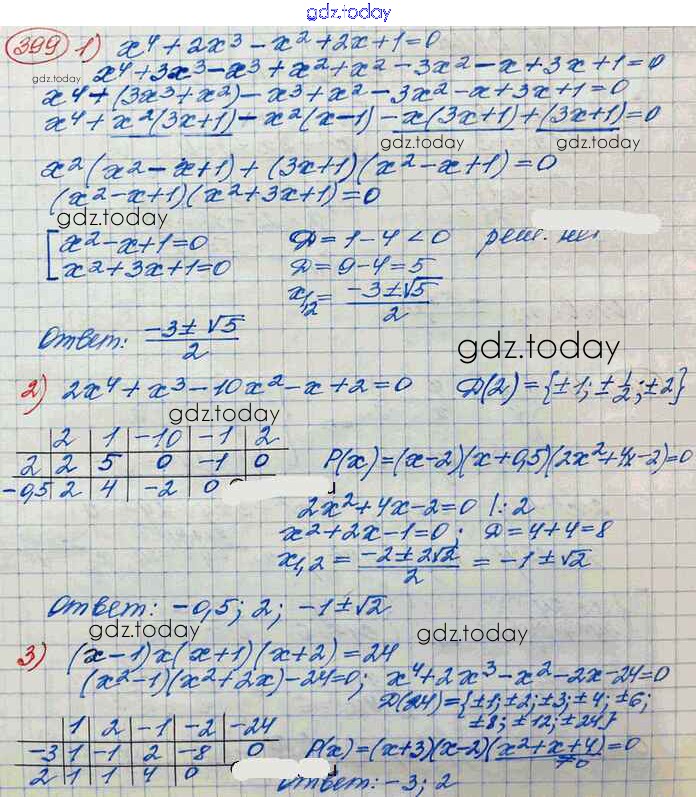 gdz.today
399 1) x⁴ + 2x³ - x² + 2x + 1 = 0
gdz.today
x⁴ + 3x³ - x³ + x² + x² - 3x² - x + 3x + 1 = 0
x⁴ + (3x³ + x²) - x³ + x² - 3x² - x + 3x + 1 = 0
x⁴ + x²(3x+1) - x²(x-1) - x(3x+1) + (3x+1) = 0
gdz.today gdz.today
x²(x² - x + 1) + (3x+1)(x² - x + 1) = 0
(x² - x + 1)(x² + 3x + 1) = 0
gdz.today
[ x² - x + 1 = 0 D = 1 - 4 < 0 реш. нет
x² + 3x + 1 = 0 D = 9 - 4 = 5
x₁,₂ = (-3 ± √5)/2
gdz.today
Ответ: (-3 ± √5)/2
gdz.today
2) 2x⁴ + x³ - 10x² - x + 2 = 0 D(2) = {±1; ±1/2; ±2}
gdz.today
2 | 1 | -10 | -1 | 2
2 | 2 | 5 | 0 | -1 | 0 P(x) = (x-2)(x+0,5)(2x²+4x-2) = 0
-0,5 | 2 | 4 | -2 | 0
2x² + 4x - 2 = 0 |: 2
x² + 2x - 1 = 0; D = 4 + 4 = 8
x₁,₂ = (-2 ± 2√2)/2 = -1 ± √2
Ответ: -0,5; 2; -1 ± √2
gdz.today gdz.today
3) (x-1)x(x+1)(x+2) = 24
(x²-1)(x²+2x) - 24 = 0; x⁴ + 2x³ - x² - 2x - 24 = 0
gdz.today
D(24) = {±1; ±2; ±3; ±4; ±6;
±8; ±12; ±24}
1 | 2 | -1 | -2 | -24
-3 | 1 | -1 | 2 | -8 | 0 P(x) = (x+3)(x-2)(x²+x+4) = 0
≠0
2 | 1 | 1 | 4 | 0
Ответ: -3; 2